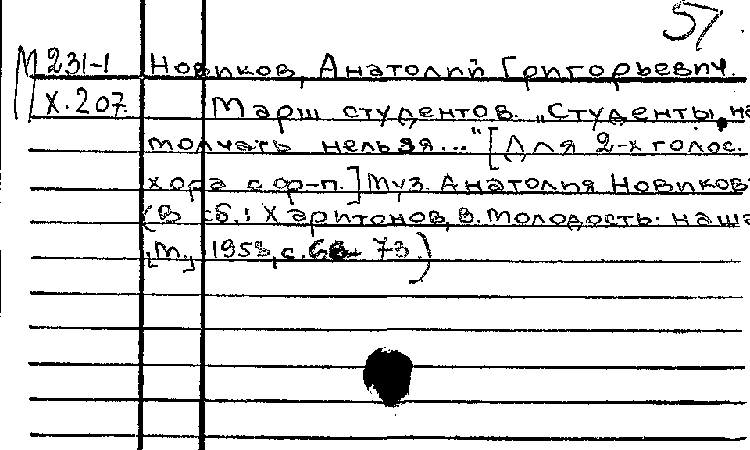 57
М 231-1 Новиков, Анатолий Григорьевич.
X.207 Марш студентов. „Студенты, на
молчать нельзя..." [Для 2-х голос.
хора с ф-п.] Муз. Анатолья Новиков
(В сб.: Харитонов, В. Молодость наша
[М.,] 1958, с. 68-73.)